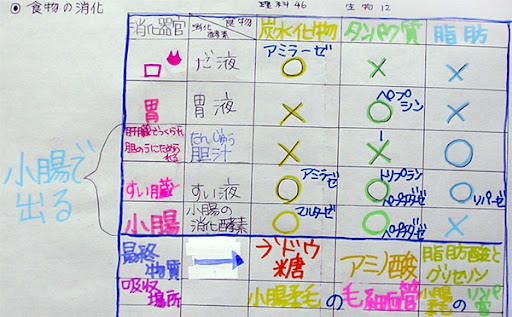 ◎ 食物の消化 理科46 生物12
消化器官 消化酵素 食物 炭水化物 タンパク質 脂肪
口 だ液 アミラーゼ ○ × ×
胃 胃液 × ペプシン ○ ×
肝臓でつくられ
胆のうにためられる
たんじゅう
胆汁 × × ○
小腸で
出る
すい臓 すい液 アミラーゼ ○ トリプシン ペプチダーゼ ○ リパーゼ ○
小腸 小腸の
消化酵素 マルターゼ ○ ペプチダーゼ ○ ×
最終
物質 → ブドウ
糖 アミノ酸 脂肪酸と
グリセリン
吸収
場所 小腸柔毛の毛細血管 小腸柔毛のリンパ管